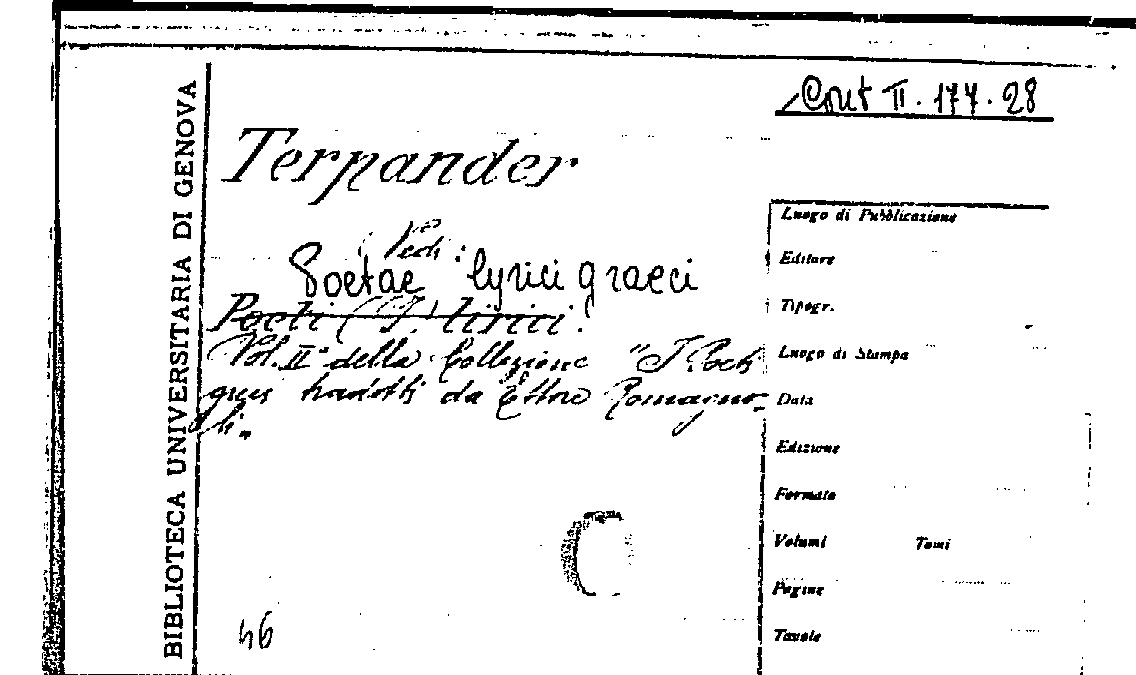 Cont II. 177. 28
Terpander
Vedi:
Poetae lyrici graeci
Poeti (I) lirici.
Vol. II della Collezione "I Poeti
greci tradotti da Ettore Romagno-
li.
46
BIBLIOTECA UNIVERSITARIA DI GENOVA
Luogo di Pubblicazione
Editore
Tipogr.
Luogo di Stampa
Data
Edizione
Formato
Volumi Tomi
Pagine
Tavole